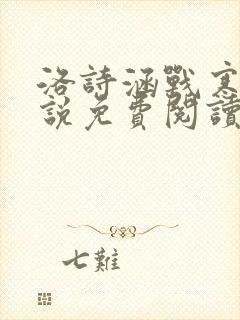 洛詩涵戰寒
說免費閱讀
七難